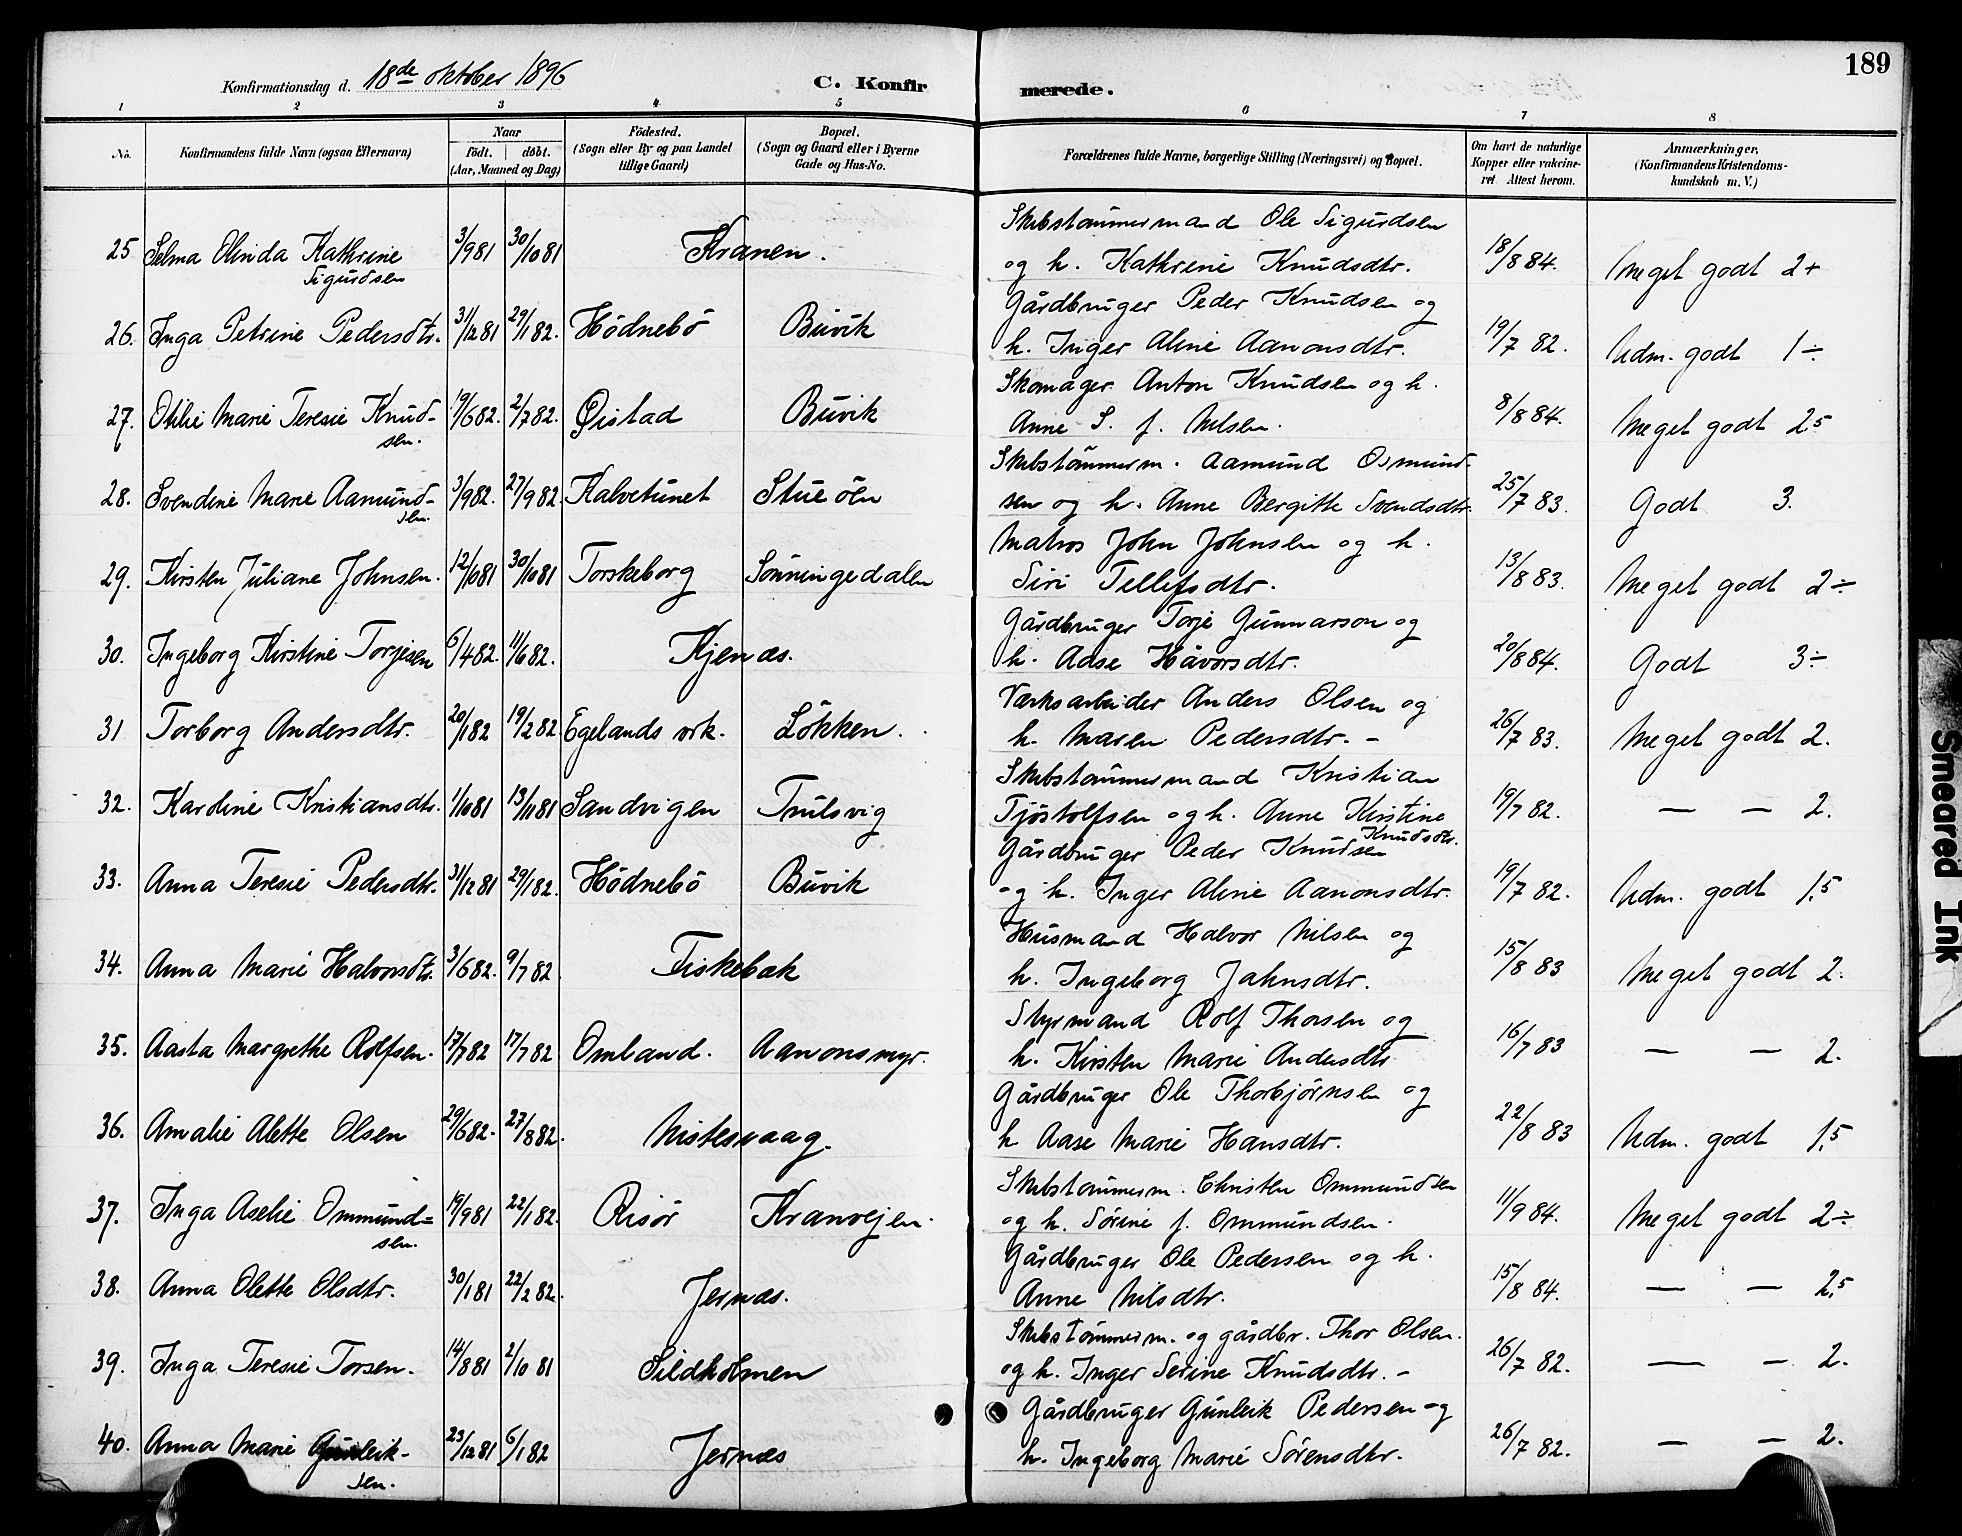 189
Konfirmationsdag d. 18de oktober 1896 C. Konfirmerede.
1 2 3 4 5 6 7 8
No. Konfirmandens fulde Navn (ogsaa Efternavn) Naar født. døbt. (Aar, Maaned og Dag) Födested. (Sogn eller By og paa Landet tillige Gaard) Bopæl. (Sogn og Gaard eller i Byerne Gade og Hus-No. Forældrenes fulde Navne, borgerlige Stilling (Næringsvei) og Bopæl. Om havt de naturlige Kopper eller vakcineret Attest herom. Anmærkninger, (Konfirmandens Kristendomskundskab m. V.)
25 Selma Olinda Kathrine Sigurdsen 3/9 81 30/10 81 Kranen. Skibstømmermand Ole Sigurdsen og h. Kathrine Knudsdtr. 18/8 84. Meget godt 2+
26. Inga Petrine Pedersdtr. 31/12 81 29/1 82. Hødnebö Buvik Gårdbruger Peder Knudsen og h. Inger Aline Aanonsdtr. 19/7 82. Udm. godt 1÷
27. Otilie Marie Teresie Knudsen. 19/6 82. 2/7 82. Øistad Buvik Skomager Anton Knudsen og h. Anne S. f. Nilsen. 8/8 84. Meget godt 2,5
28. Svendine Marie Aamundsen. 3/9 82. 27/9 82 Kalvetunet Stueöen Skibstømmerm. Aamund Osmundsen og h. Anne Bergitte Svendsdtr. 25/7 83. Godt 3.
29. Kirsten Juliane Johnsen. 12/10 81 30/10 81 Torskeborg Sønningedalen Matros John Johnsen og h. Siri Tellefsdtr. 13/8 83. Meget godt 2÷
30. Ingeborg Kirstine Torjesen 6/4 82. 11/6 82. Kjenæs. Gårdbruger Torje Gunnarson og h. Aase Håvorsdtr. 20/8 84. Godt 3÷
31 Torborg Andersdtr. 20/1 82 19/2 82 Egelands vrk. Løkken. Værksarbeider Anders Olsen og h. Maren Pedersdtr. – 26/7 83. Meget godt 2.
32. Karoline Kristiansdtr. 1/10 81 13/11 81 Sandvigen Trulsvig Skibstømmermand Kristian Tjøstolfsen og h. Anne Kirstine Knudsdtr. 19/7 82. — — 2.
33. Anna Teresie Pedersdtr. 31/12 81 29/1 82. Hødnebö Buvik Gårdbruger Peder Knudsen og h. Inger Aline Aanonsdtr. 19/7 82. Udm. godt 1,5
34. Anna Marie Halvorsdtr. 3/6 82. 9/7 82 Fiskebæk Husmand Halvor Nilsen og h. Ingeborg Jahnsdtr. 15/8 83 Meget godt 2.
35. Aasta Margrethe Rolfsen. 17/7 82 17/7 82 Omland. Aanonsmyr. Styrmand Rolf Thorsen og h. Kirsten Marie Andersdtr 16/7 83 — — 2.
36. Amalie Alette Olsen 29/6 82. 27/8 82. Nistesvaag. Gårdbruger Ole Thorbjørnsen og h Aase Marie Hansdtr. 22/8 83 Udm. godt 1,5
37. Inga Aselie Ommundsen. 19/9 81 22/1 82. Risør Kranvejen. Skibstømmerm. Christen Ommundsen og h. Sørine f. Ommundsen. 11/9 84. Meget godt 2÷
38. Anna Olette Olsdtr. 30/1 81 22/2 82. Jernæs. Gårdbruger Ole Pedersen og h. Anne Nilsdtr. 15/8 84. — — 2,5
39. Inga Teresie Torsen. 14/8 81 2/10 81 Sildholmen Skibstømmerm. og gårdbr. Thor Olsen. og h. Inger Serine Knudsdtr. – 26/7 82. — — 2.
40. Anna Marie Gunleiksen. 23/12 81 6/1 82 Jernæs Gårdbruger Gunleik Pedersen og h. Ingeborg Marie Sørensdtr. 26/7 82. — — 2.
Smeared Ink